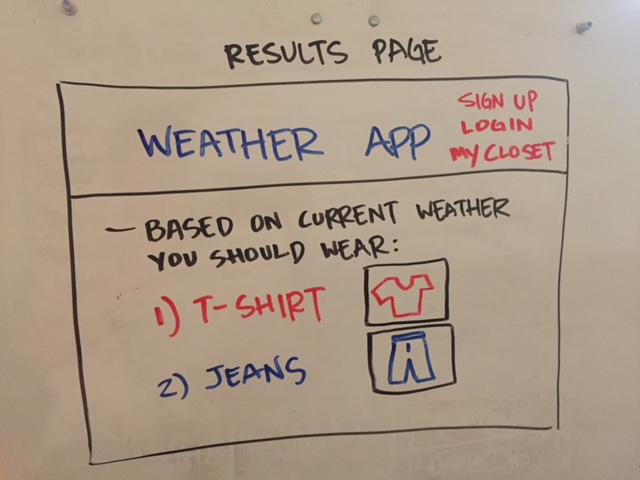 RESULTS PAGE
WEATHER APP
SIGN UP
LOGIN
MY CLOSET
— BASED ON CURRENT WEATHER
YOU SHOULD WEAR:
1) T-SHIRT
2) JEANS